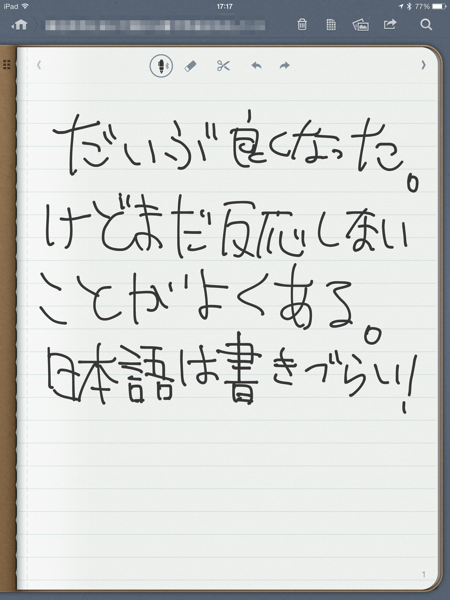 iPad 17:17 77%
だいぶ良くなった。
けどまだ反応しない
ことがよくある。
日本語は書きづらい!
1